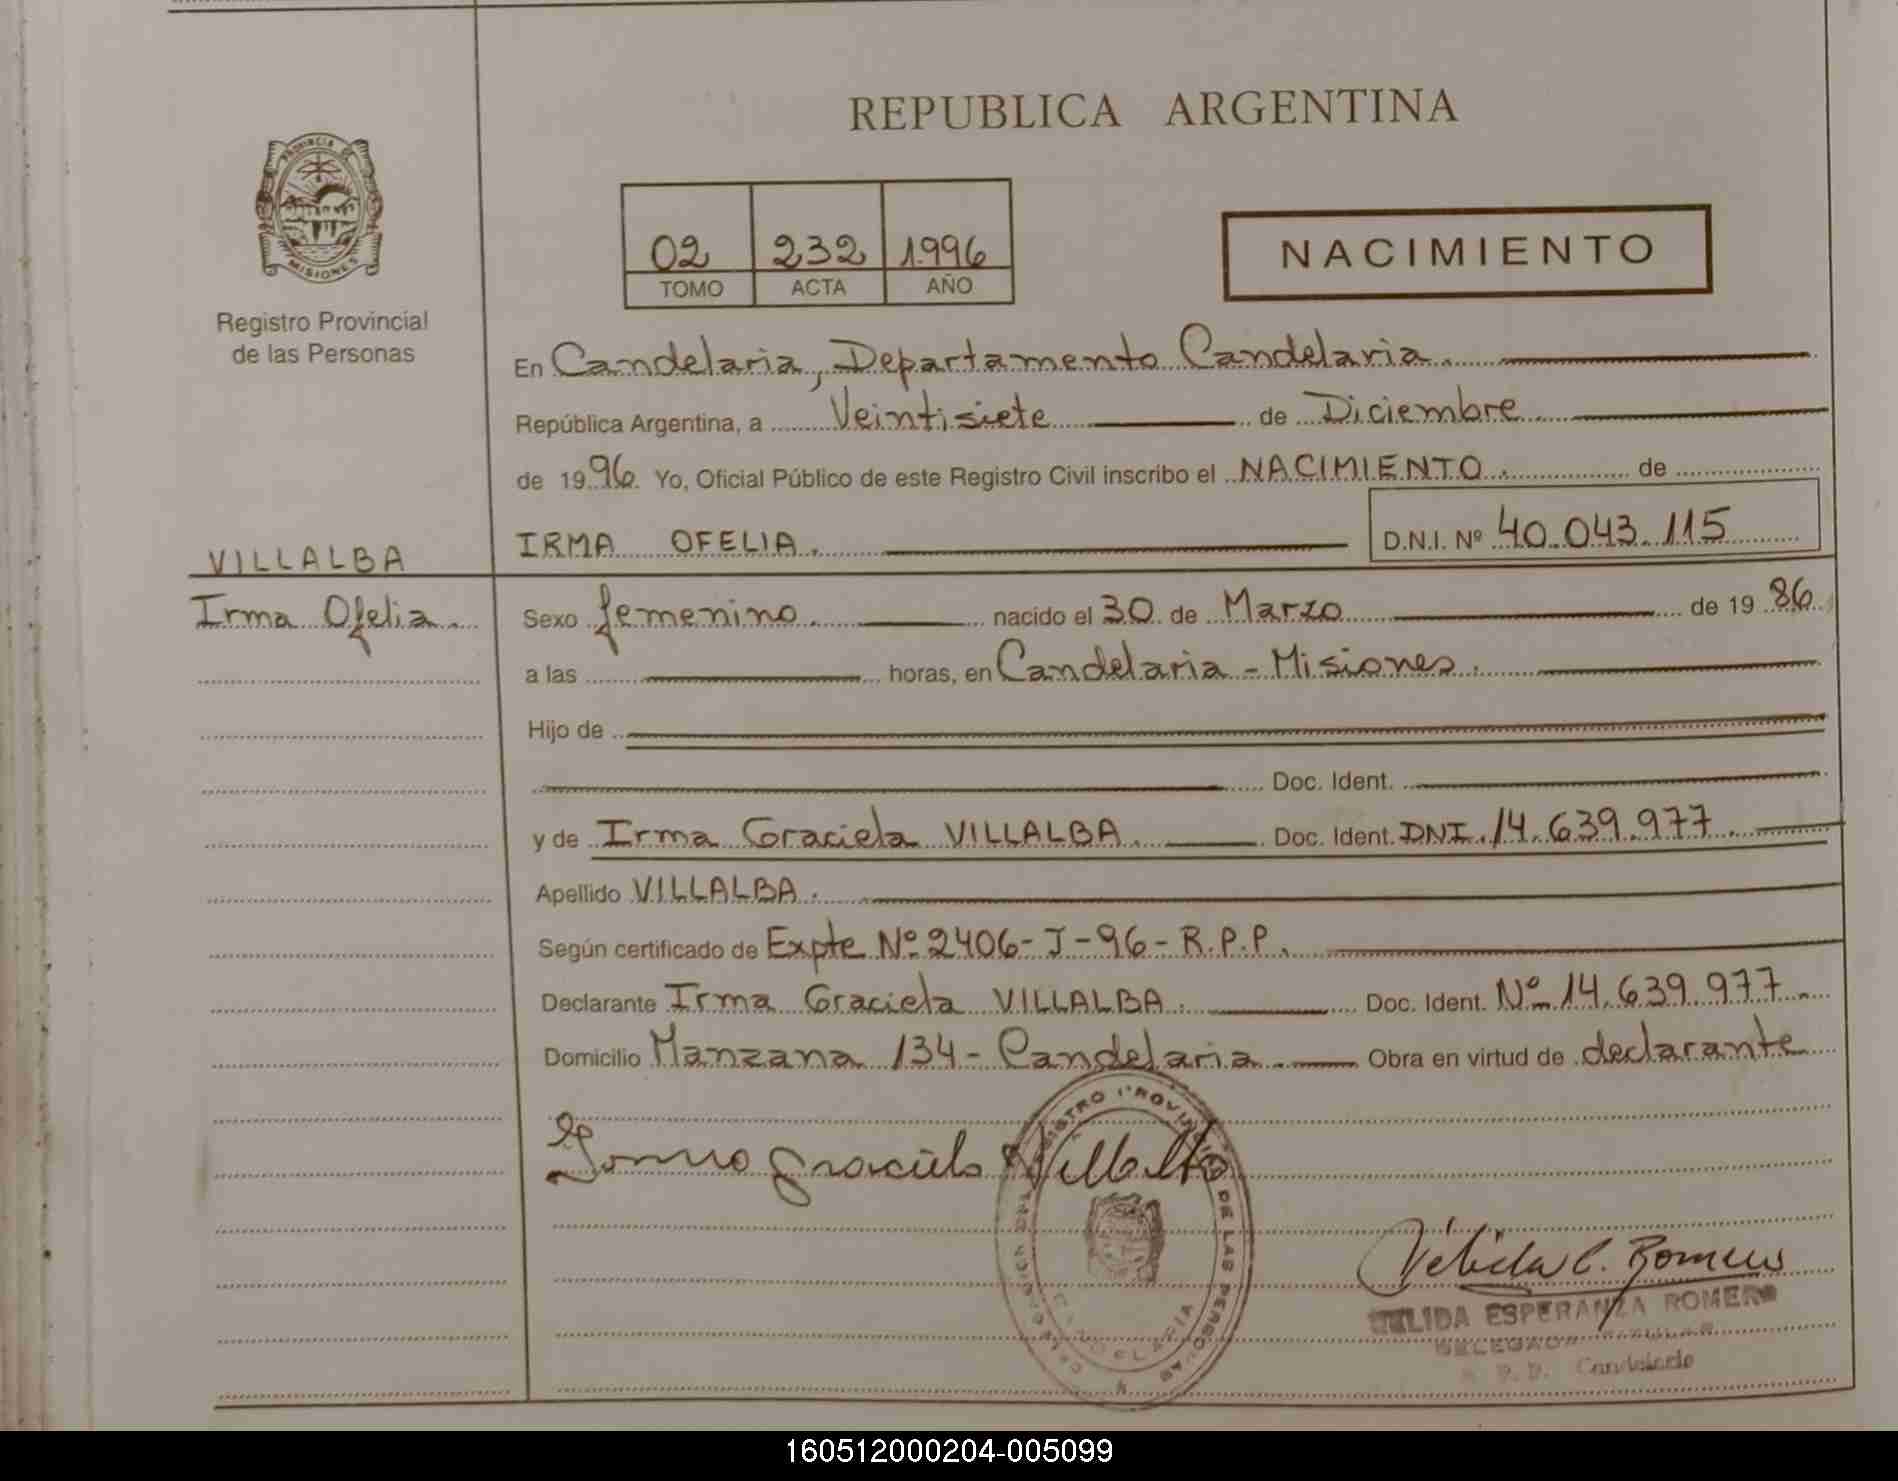 REPUBLICA ARGENTINA
PROVINCIA DE
MISIONES
Registro Provincial
de las Personas
02 232 1996
TOMO ACTA AÑO
NACIMIENTO
En Candelaria, Departamento Candelaria.
República Argentina, a Veintisiete de Diciembre
de 1996. Yo, Oficial Público de este Registro Civil inscribo el NACIMIENTO. de
IRMA OFELIA. D.N.I. Nº 40.043.115
VILLALBA
Irma Ofelia.
Sexo femenino. nacido el 30 de Marzo de 1986
a las horas, en Candelaria - Misiones.
Hijo de
Doc. Ident.
y de Irma Graciela VILLALBA. Doc. Ident. DNI. 14.639.977.
Apellido VILLALBA.
Según certificado de Expte Nº 2406-J-96-R.P.P.
Declarante Irma Graciela VILLALBA. Doc. Ident. Nº 14.639.977.
Domicilio Manzana 134 - Candelaria. Obra en virtud de declarante
Irma Graciela Villalba
REGISTRO PROVINCIAL DE LAS PERSONAS
CANDELARIA
C. Romero
ESPERANZA ROMERO
Candelaria
160512000204-005099